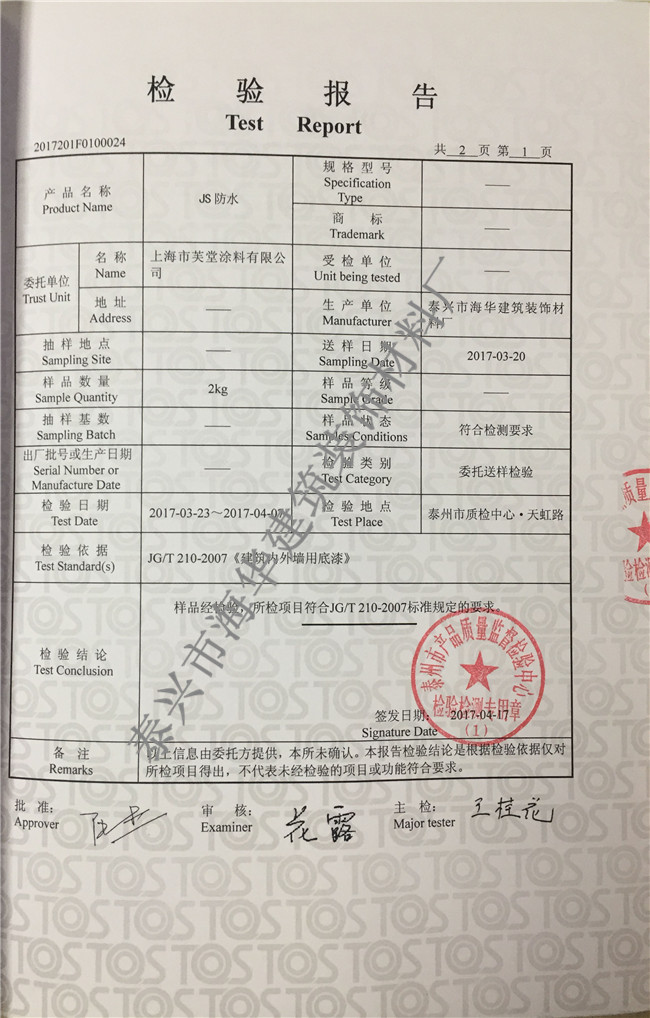 检 验 报 告
Test Report
2017201F0100024
共 2 页 第 1 页
产 品 名 称
Product Name
JS 防水
规 格 型 号
Specification
Type
——
商 标
Trademark
——
委托单位
Trust Unit
名 称
Name
上海市芙堂涂料有限公
司
受 检 单 位
Unit being tested
——
地 址
Address
——
生 产 单 位
Manufacturer
泰兴市海华建筑装饰材
料厂
抽 样 地 点
Sampling Site
——
送 样 日 期
Sampling Date
2017-03-20
样 品 数 量
Sample Quantity
2kg
样 品 等 级
Sample Grade
——
抽 样 基 数
Sampling Batch
——
样 品 状 态
Samples Conditions
符合检测要求
出厂批号或生产日期
Serial Number or
Manufacture Date
——
检 验 类 别
Test Category
委托送样检验
检 验 日 期
Test Date
2017-03-23～2017-04-07
检 验 地 点
Test Place
泰州市质检中心·天虹路
检 验 依 据
Test Standard(s)
JG/T 210-2007《建筑内外墙用底漆》
检 验 结 论
Test Conclusion
样品经检验，所检项目符合JG/T 210-2007标准规定的要求。
泰州市产品质量监督检验中心
检验检测专用章
(1)
签发日期： 2017-04-17
Signature Date
备 注
Remarks
以上信息由委托方提供，本所未确认。本报告检验结论是根据检验依据仅对
所检项目得出，不代表未经检验的项目或功能符合要求。
批 准：
Approver
审 核：
Examiner
花露
主 检：
Major tester
王桂花
泰兴市海华建筑装饰材料厂
质量
验检测
TOSTOSTOSTOS